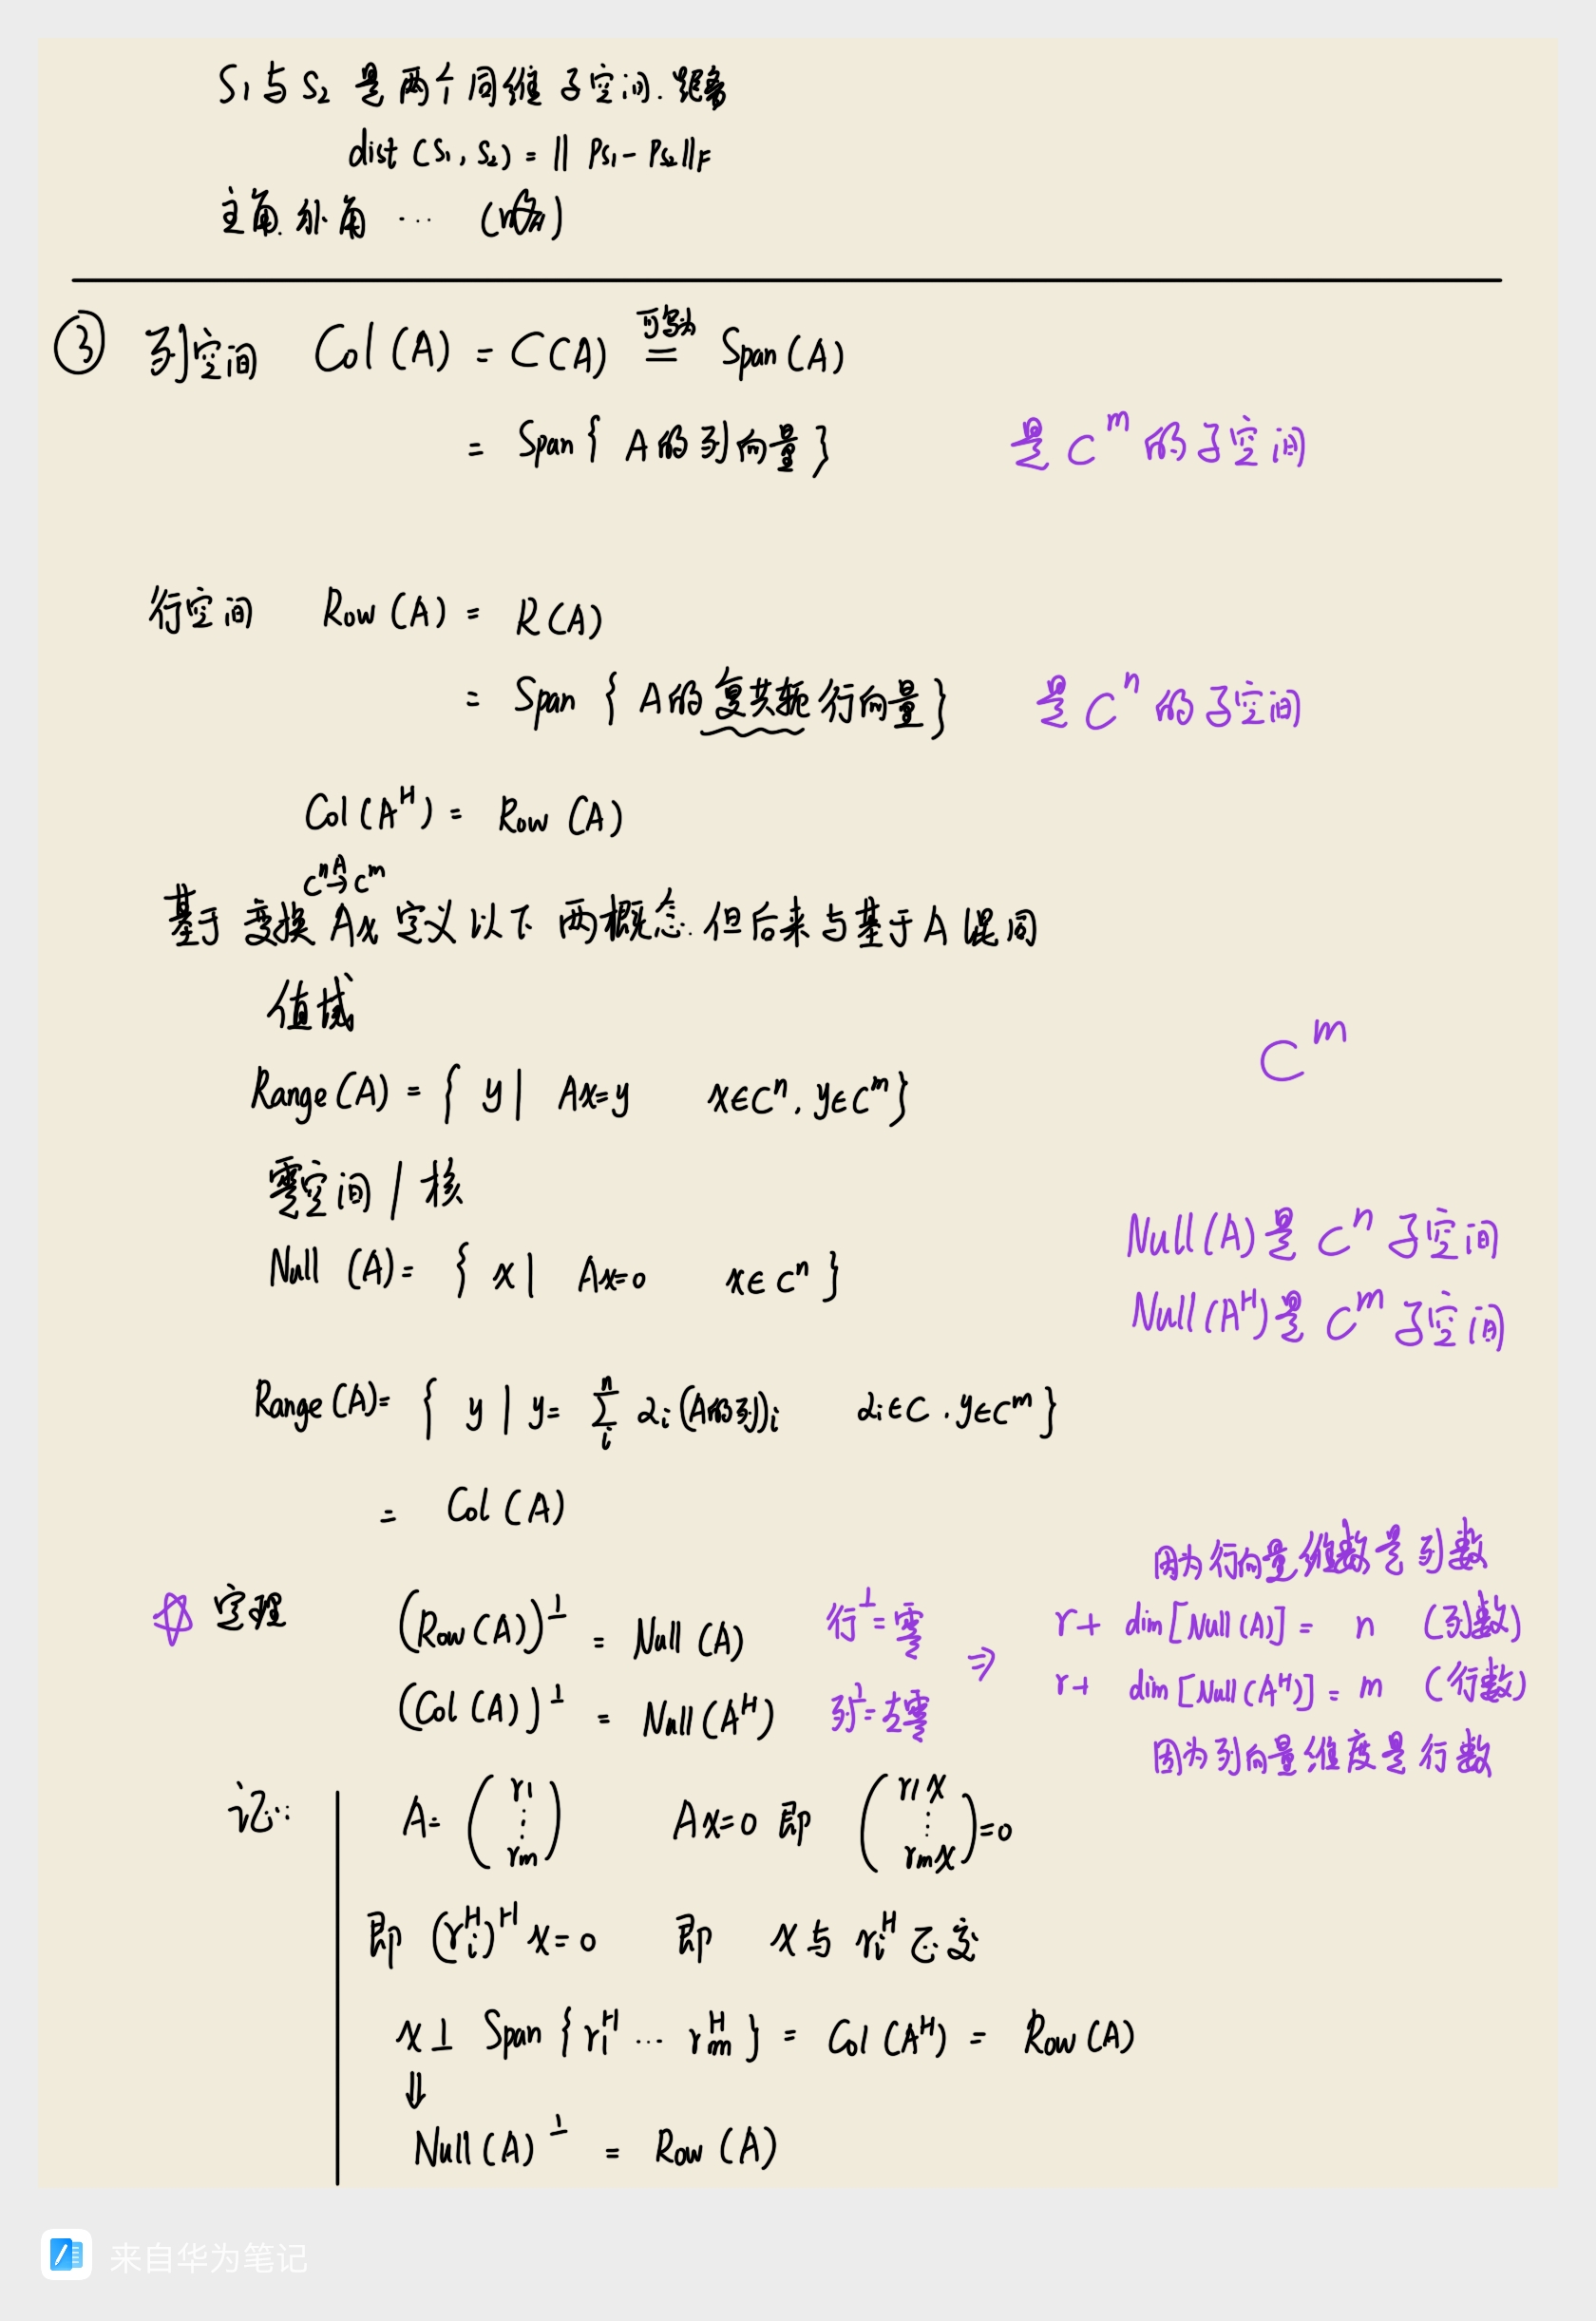 S1与S2 是两个同维子空间.距离
dist(S1,S2)=||Ps1-Ps2||F
主角.补角 ··· (略)
③ 列空间 Col(A)=C(A) 可写为= Span(A)
= Span{A的列向量} 是C^m的子空间
行空间 Row(A)= R(A)
= Span{A的复共轭行向量} 是C^n的子空间
Col(A^H)= Row(A)
C^n A→ C^m
基于变换Ax定义以下两概念.但后来与基于A混同
值域
C^m
Range(A)={y| Ax=y x∈C^n, y∈C^m}
零空间/核
Null(A)={x| Ax=0 x∈C^n}
Null(A)是C^n子空间
Null(A^H)是C^m子空间
Range(A)={y|y=∑_i^n α_i(A的列)_i α_i∈C, y∈C^m}
= Col(A)
因为行向量维数是列数
☆ 定理 (Row(A))^⊥ = Null(A) 行^⊥=零 ⇒ r+ dim[Null(A)]= n (列数)
(Col(A))^⊥ = Null(A^H) 列^⊥=左零 r+ dim[Null(A^H)]= m (行数)
因为列向量维度是行数
记: A=(r1 ⋮ rm) Ax=0 即 (r1x ⋮ rmx)=0
即 (r_i^H)^H x=0 即 x与r_i^H正交
x⊥ Span{r_1^H ··· r_m^H} = Col(A^H) = Row(A)
⇓
Null(A)^⊥ = Row(A)
来自华为笔记